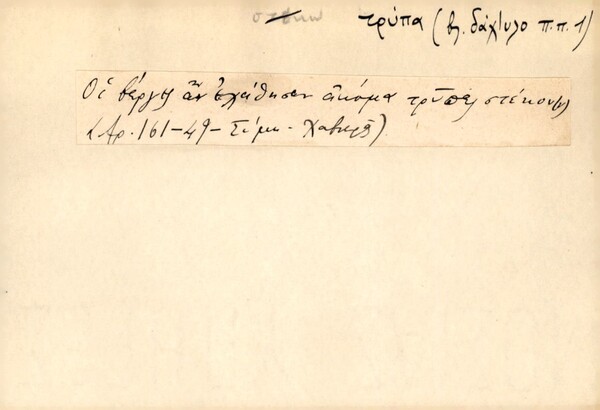 στέκω
τρύπα (βλ. δάχτυλο π.π. 1)
Οἱ βέργες ἂν ἐχάθησαν ἀκόμα τρύπες στέκου(ν)
(Ἀρ. 161-49- Σύμη - Χαβιαρᾶ)